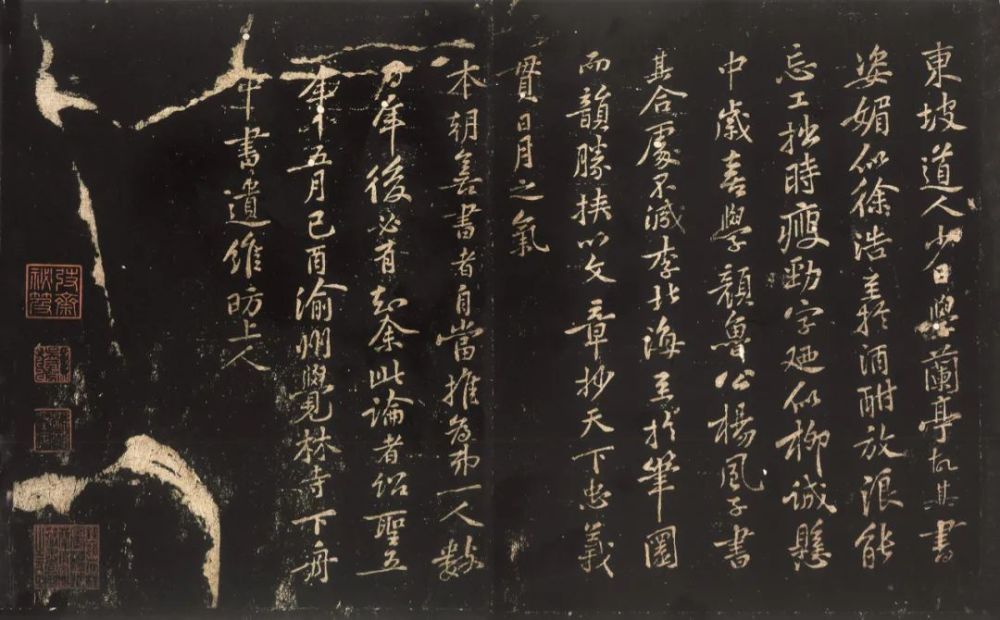 東坡道人少日學蘭亭故其書
姿媚似徐浩至於酒酣放浪能
忘工拙時瘦勁字廼似柳誠懸
中歲喜學顏魯公楊風子書
其合處不減李北海至於筆圜
而韻勝挾以文章妙天下忠義
貫日月之氣
本朝善書者自當推為第一人數
百年後必有知余此論者紹聖五
年五月己酉渝州覺林寺下舟
中書遺維昉上人